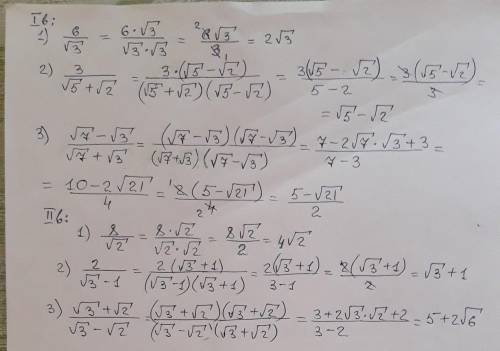 Iв:
1) 6/√3 = 6·√3/(√3·√3) = 6√3/3 = 2√3
2) 3/(√5+√2) = 3·(√5-√2)/((√5+√2)(√5-√2)) = 3(√5-√2)/(5-2) = 3(√5-√2)/3 =
= √5-√2
3) (√7-√3)/(√7+√3) = (√7-√3)(√7-√3)/((√7+√3)(√7-√3)) = (7-2√7·√3+3)/(7-3) =
= (10-2√21)/4 = 2(5-√21)/4 = (5-√21)/2
IIв:
1) 8/√2 = 8·√2/(√2·√2) = 8√2/2 = 4√2
2) 2/(√3-1) = 2(√3+1)/((√3-1)(√3+1)) = 2(√3+1)/(3-1) = 2(√3+1)/2 = √3+1
3) (√3+√2)/(√3-√2) = (√3+√2)(√3+√2)/((√3-√2)(√3+√2)) = (3+2√3·√2+2)/(3-2) = 5+2√6